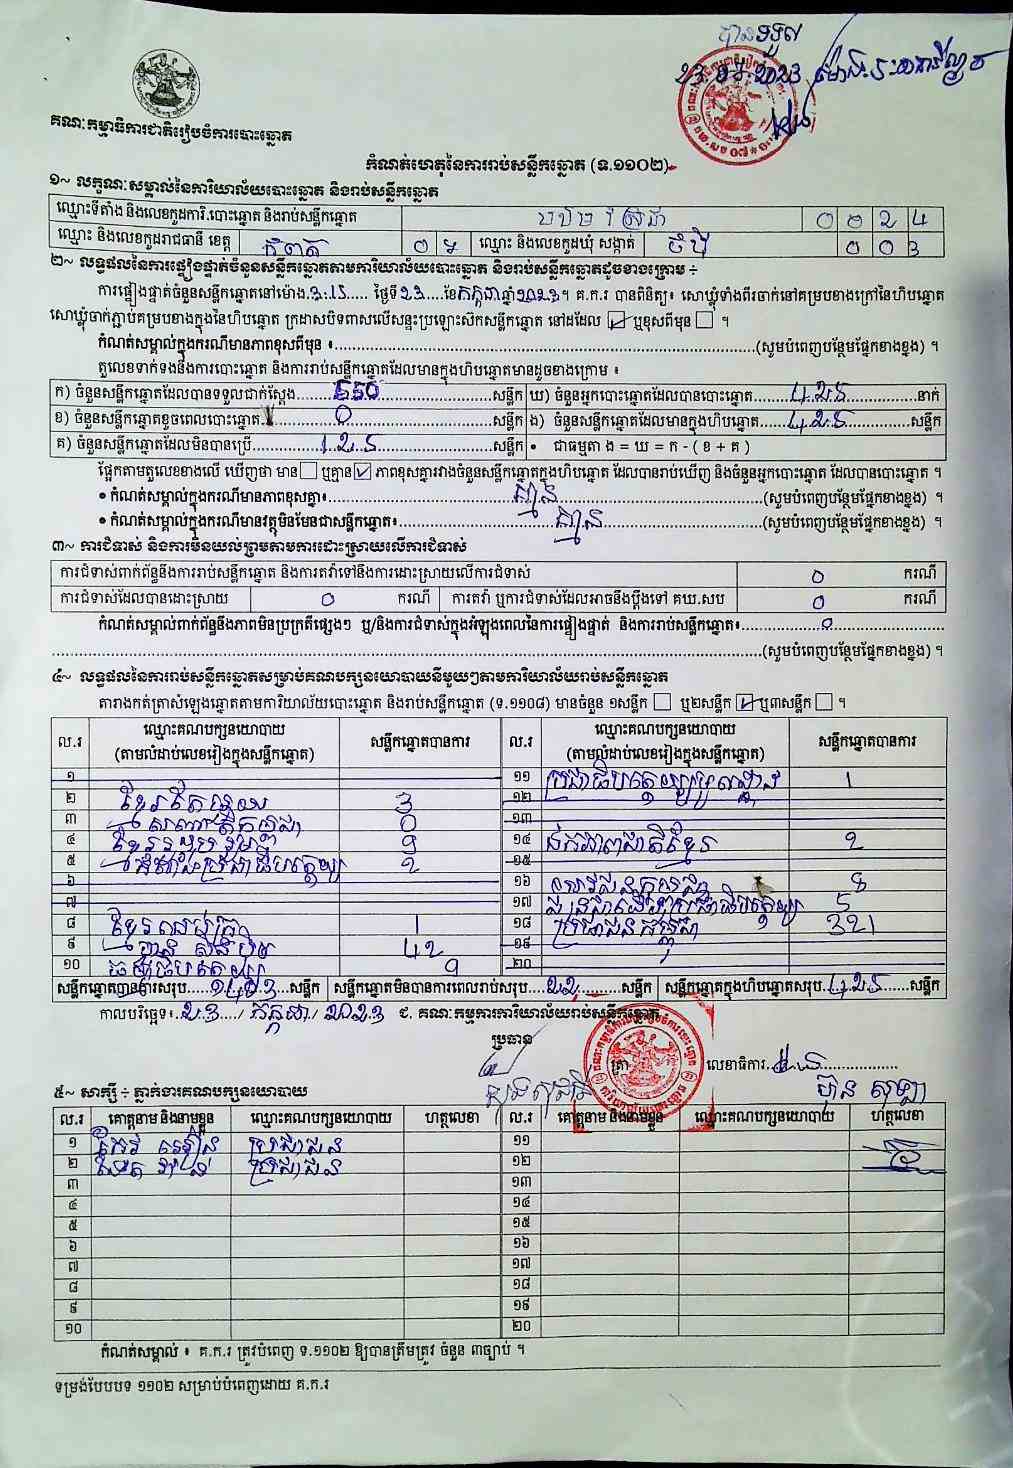 បានទទួល
គណៈកម្មាធិការជាតិរៀបចំការបោះឆ្នោត
កំណត់ហេតុនៃការរាប់សន្លឹកឆ្នោត (ទ.១១០២)
១~ លក្ខណៈសម្គាល់នៃការិយាល័យបោះឆ្នោត និងរាប់សន្លឹកឆ្នោត
ឈ្មោះទីតាំង និងលេខកូដការិ.បោះឆ្នោត និងរាប់សន្លឹកឆ្នោត 0 0 2 4
ឈ្មោះ និងលេខកូដរាជធានី ខេត្ត កំពត ០ ៧ ឈ្មោះ និងលេខកូដឃុំ សង្កាត់ ចំប៉ី 0 0 3
២~ លទ្ធផលនៃការផ្ទៀងផ្ទាត់ចំនួនសន្លឹកឆ្នោតតាមការិយាល័យបោះឆ្នោត និងរាប់សន្លឹកឆ្នោតដូចខាងក្រោម ÷
ការផ្ទៀងផ្ទាត់ចំនួនសន្លឹកឆ្នោតនៅម៉ោង 3:15 ថ្ងៃទី 23 ខែ កក្កដា ឆ្នាំ 2023 ។ គ.ក.រ បានពិនិត្យ៖ សោឃ្លុំទាំងពីរចាក់នៅគម្របខាងក្រៅនៃហិបឆ្នោត
សោឃ្លុំចាក់ភ្ជាប់គម្របខាងក្នុងនៃហិបឆ្នោត ក្រដាសបិទពាសលើសន្ទះប្រឡោះស៊កសន្លឹកឆ្នោត នៅដដែល ☑ ឬខុសពីមុន ☐ ។
កំណត់សម្គាល់ក្នុងករណីមានភាពខុសពីមុន ៖ (សូមបំពេញបន្ថែមផ្នែកខាងខ្នង) ។
តួលេខទាក់ទងនឹងការបោះឆ្នោត និងការរាប់សន្លឹកឆ្នោតដែលមានក្នុងហិបឆ្នោតមានដូចខាងក្រោម ៖
ក) ចំនួនសន្លឹកឆ្នោតដែលបានទទួលជាក់ស្តែង 550 សន្លឹក ឃ) ចំនួនអ្នកបោះឆ្នោតដែលបានបោះឆ្នោត 425 នាក់
ខ) ចំនួនសន្លឹកឆ្នោតខូចពេលបោះឆ្នោត 0 សន្លឹក ង) ចំនួនសន្លឹកឆ្នោតដែលមានក្នុងហិបឆ្នោត 425 សន្លឹក
គ) ចំនួនសន្លឹកឆ្នោតដែលមិនបានប្រើ 125 សន្លឹក • ជាធម្មតា ង = ឃ = ក - ( ខ + គ )
ផ្អែកតាមតួលេខខាងលើ ឃើញថា មាន ☐ ឬគ្មាន ☑ ភាពខុសគ្នារវាងចំនួនសន្លឹកឆ្នោតក្នុងហិបឆ្នោត ដែលបានរាប់ឃើញ និងចំនួនអ្នកបោះឆ្នោត ដែលបានបោះឆ្នោត ។
• កំណត់សម្គាល់ក្នុងករណីមានភាពខុសគ្នា៖ គ្មាន (សូមបំពេញបន្ថែមផ្នែកខាងខ្នង) ។
• កំណត់សម្គាល់ក្នុងករណីមានវត្ថុមិនមែនជាសន្លឹកឆ្នោត៖ គ្មាន (សូមបំពេញបន្ថែមផ្នែកខាងខ្នង) ។
៣~ ការជំទាស់ និងការមិនយល់ព្រមតាមការដោះស្រាយលើការជំទាស់
ការជំទាស់ពាក់ព័ន្ធនឹងការរាប់សន្លឹកឆ្នោត និងការតវ៉ាទៅនឹងការដោះស្រាយលើការជំទាស់ 0 ករណី
ការជំទាស់ដែលបានដោះស្រាយ 0 ករណី ការតវ៉ា ឬការជំទាស់ដែលអាចនឹងប្តឹងទៅ គឃ.សប 0 ករណី
កំណត់សម្គាល់ពាក់ព័ន្ធនឹងភាពមិនប្រក្រតីផ្សេងៗ ឬ/និងការជំទាស់ក្នុងអំឡុងពេលនៃការផ្ទៀងផ្ទាត់ និងការរាប់សន្លឹកឆ្នោត៖ 0
(សូមបំពេញបន្ថែមផ្នែកខាងខ្នង) ។
៤~ លទ្ធផលនៃការរាប់សន្លឹកឆ្នោតសម្រាប់គណបក្សនយោបាយនីមួយៗតាមការិយាល័យរាប់សន្លឹកឆ្នោត
តារាងកត់ត្រាសំឡេងឆ្នោតតាមការិយាល័យបោះឆ្នោត និងរាប់សន្លឹកឆ្នោត (ទ.១១០៨) មានចំនួន ១សន្លឹក ☐ ឬ២សន្លឹក ☑ ឬ៣សន្លឹក ☐ ។
ល.រ ឈ្មោះគណបក្សនយោបាយ (តាមលំដាប់លេខរៀងក្នុងសន្លឹកឆ្នោត) សន្លឹកឆ្នោតបានការ ល.រ ឈ្មោះគណបក្សនយោបាយ (តាមលំដាប់លេខរៀងក្នុងសន្លឹកឆ្នោត) សន្លឹកឆ្នោតបានការ
១ ១១ ប្រជាធិបតេយ្យមូលដ្ឋាន 1
២ 3 ១២
៣ 0 ១៣
៤ ខ្មែររួបរួមជាតិ 9 ១៤ ឯកភាពជាតិខ្មែរ 2
៥ កម្លាំងប្រជាធិបតេយ្យ 2 ១៥
៦ ១៦ 8
៧ ១៧ 5
៨ 1 ១៨ ប្រជាជនកម្ពុជា 321
៩ ហ្វ៊ុនស៊ិនប៉ិច 42 ១៩
១០ ធម្មាធិបតេយ្យ 9 ២០
សន្លឹកឆ្នោតបានការសរុប 403 សន្លឹក សន្លឹកឆ្នោតមិនបានការពេលរាប់សរុប 22 សន្លឹក សន្លឹកឆ្នោតក្នុងហិបឆ្នោតសរុប 425 សន្លឹក
កាលបរិច្ឆេទ៖ 23 / កក្កដា / 2023 ជ. គណៈកម្មការការិយាល័យរាប់សន្លឹកឆ្នោត
ប្រធាន
ត្រា លេខាធិការ
៥~ សាក្សី ÷ ភ្នាក់ងារគណបក្សនយោបាយ
ល.រ គោត្តនាម និងនាមខ្លួន ឈ្មោះគណបក្សនយោបាយ ហត្ថលេខា ល.រ គោត្តនាម និងនាមខ្លួន ឈ្មោះគណបក្សនយោបាយ ហត្ថលេខា
១ ប្រជាជន ១១
២ ប្រជាជន ១២
៣ ១៣
៤ ១៤
៥ ១៥
៦ ១៦
៧ ១៧
៨ ១៨
៩ ១៩
១០ ២០
កំណត់សម្គាល់ ៖ គ.ក.រ ត្រូវបំពេញ ទ.១១០២ ឱ្យបានត្រឹមត្រូវ ចំនួន ៣ច្បាប់ ។
ទម្រង់បែបបទ ១១០២ សម្រាប់បំពេញដោយ គ.ក.រ